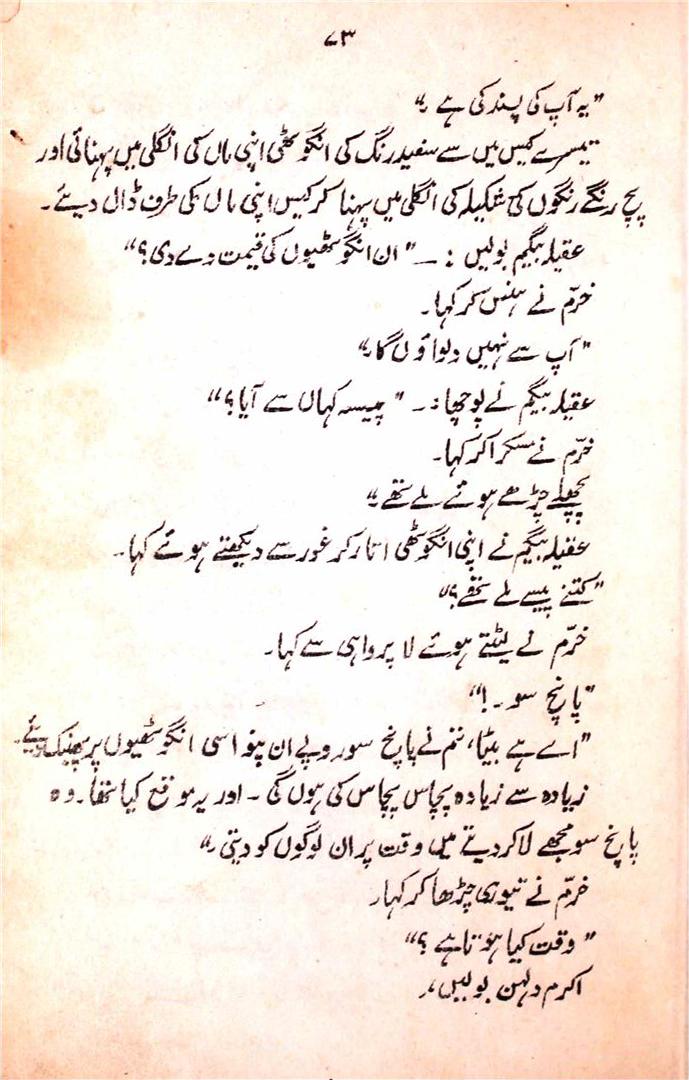 ۷۳
"یہ آپ کی پسند کی ہے۔"
تیسرے کیس میں سے سفید رنگ کی انگوٹھی اپنی ماں کی انگلی میں پہنائی اور
پچ رنگے رنگوں کی شکیلہ کی انگلی میں پہنا کر کیس اپنی ماں کی طرف ڈال دیئے۔
عقیلہ بیگم بولیں :۔ "ان انگوٹھیوں کی قیمت دے دی؟"
خرّم نے ہنس کر کہا۔
"آپ سے نہیں دلواؤں گا۔"
عقیلہ بیگم نے پوچھا :۔ "پیسہ کہاں سے آیا؟"
خرّم نے مسکرا کر کہا۔
پچھلے چڑھے ہوئے ملے تھے۔"
عقیلہ بیگم نے اپنی انگوٹھی اتار کر غور سے دیکھتے ہوئے کہا۔
"کتنے پیسے ملے تھے؟"
خرّم نے لیٹتے ہوئے لا پرواہی سے کہا۔
"پانچ سو۔!"
"اے ہے بیٹا، تم نے پانچ سو روپے ان اسی انگوٹھیوں پر پھینک دیئے۔
زیادہ سے زیادہ پچاس پچاس کی ہوں گی۔ اور یہ موقع کیا تھا۔ وہ
پانچ سو مجھے لا کر دیتے میں وقت پر ان لوگوں کو دیتی۔"
خرّم نے تیوری چڑھا کر کہا۔
"وقت کیا ہوتا ہے ؟"
اکرم دلہن بولیں،۔